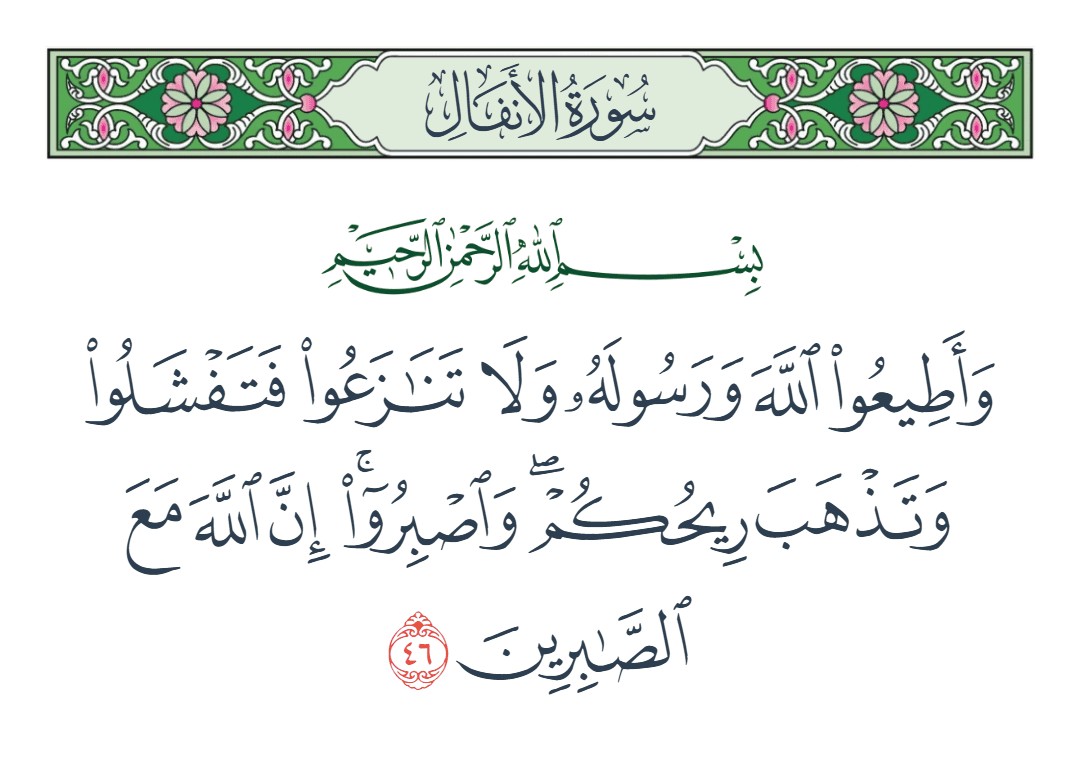 سُورَةُ الأَنفَالِ
بِسْمِ ٱللَّهِ ٱلرَّحْمَٰنِ ٱلرَّحِيمِ
وَأَطِيعُوا۟ ٱللَّهَ وَرَسُولَهُۥ وَلَا تَنَـٰزَعُوا۟ فَتَفْشَلُوا۟
وَتَذْهَبَ رِيحُكُمْ ۖ وَٱصْبِرُوٓا۟ ۚ إِنَّ ٱللَّهَ مَعَ
ٱلصَّـٰبِرِينَ ٤٦